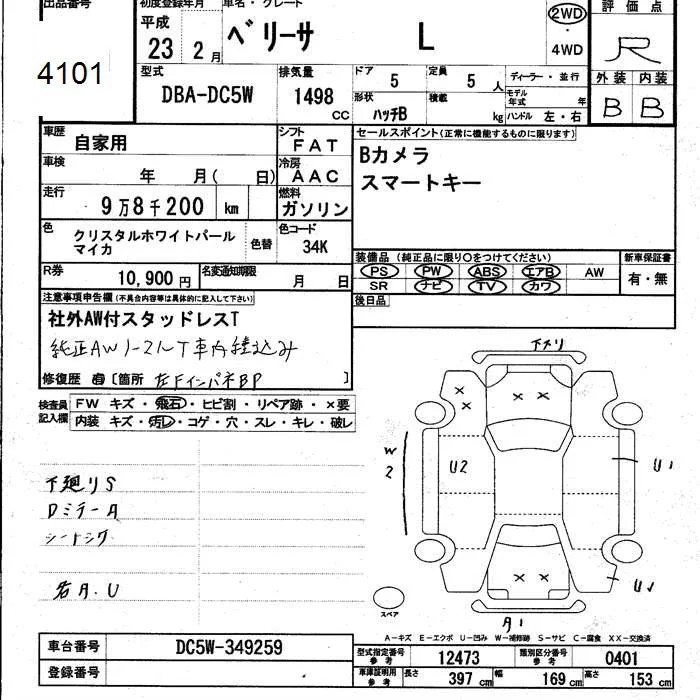 出品番号
4101
初度登録年月
平成
23年 2月
車名・グレード
ベリーサ L
2WD
・
4WD
評価点
R
外装 内装
B B
型式
DBA-DC5W
排気量
1498 CC
ドア 5
定員 5 人
形状 ハッチB
積載 kg
ディーラー・並行
モデル年式 年
ハンドル 左・右
車歴 自家用
シフト FAT
車検 年 月( 日)
冷房 AAC
走行 9万8千200 km
燃料 ガソリン
色 クリスタルホワイトパールマイカ
色替
色コード 34K
R券 10,900円
名変通知期限 月 日
セールスポイント(正常に機能するものに限ります)
Bカメラ
スマートキー
装備品 (純正品に限り○をつけてください)
PS PW ABS エアB AW
SR ナビ TV カワ
新車保証書
有・無
後日品
注意事項申告欄 (不具合内容等は具体的に記入して下さい)
社外AW付スタッドレスT
純正AWノーマルT車内積込み
修復歴 有 [箇所 左FインパネBP ]
検査員記入欄
FW キズ・飛石・ヒビ割・リペア跡・×要
内装 キズ・汚レ・コゲ・穴・スレ・キレ・破レ
下廻りS
DミラーA
シートシワ
各A.U
下スリ
W2
U2
U1
A1
スペア
A-キズ E-エクボ U-凹み W-補修跡 S-サビ C-腐食 XX-交換済
車台番号 DC5W-349259
登録番号
型式指定番号 参考 12473
類別区分番号 参考 0401
車庫証明用 参考
長さ 397 cm
幅 169 cm
高さ 153 cm